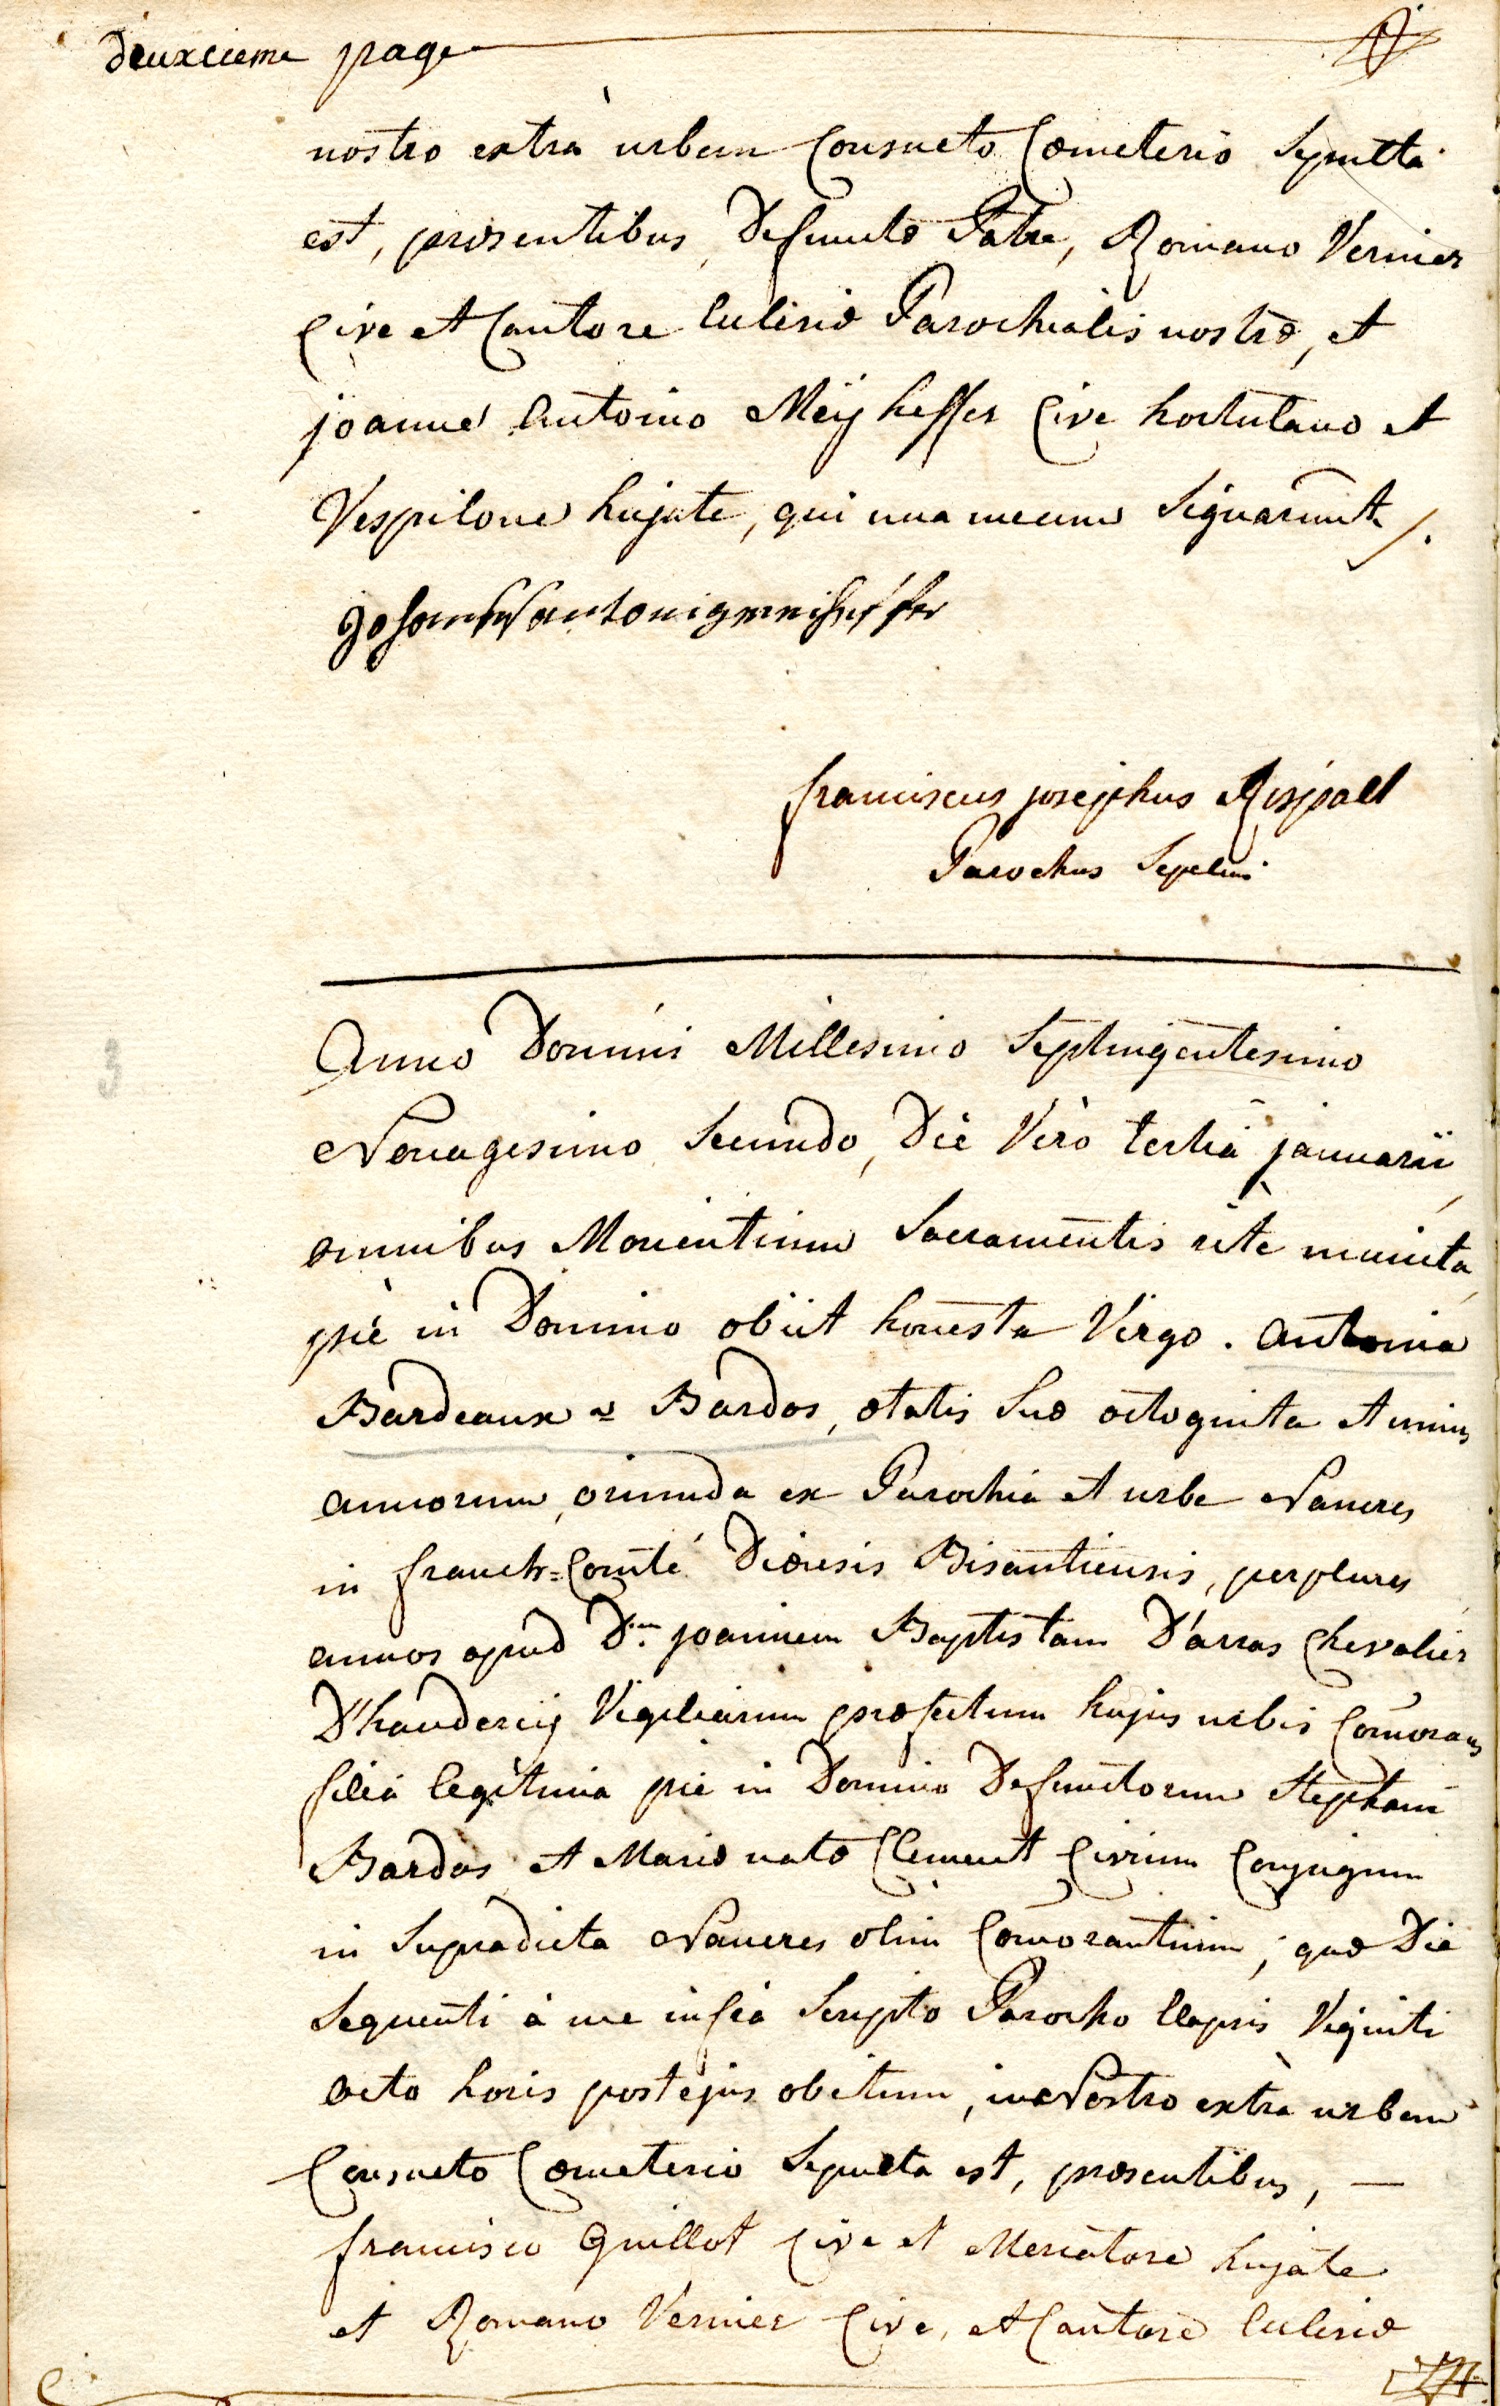 deuxcieme page
nostro extrà urbem Consueto Cœmeterio Sepulta
est, præsentibus, Defunctæ Patre, Romano Vernier
Cive et Cantore Eclesiæ Parochialis nostræ, et
joanne Antonio Meÿheffer Cive hortulano et
Vespilone hujate, qui una mecum Signarunt /.
franciscus josephus Rispall
Parochus Sepelivi
Anno Domini Millesimo Septingentesimo
Nonagesimo Secundo, Die Verò tertiâ januarii,
omnibus Morientium Sacramentis rite munita,
piè in Domino obiit honesta Virgo. Antonia
Bardeaux ~ Bardos, ætatis Suæ octoginta et unius
annorum, oriunda ex Parochia et urbe Naneres
in franch=Comté Diœcesis Bisantiensis, perplures
annos apud D.m joannem Baptistam D'arras Chevalier
D'haudercÿ Vigiliarum præfectum hujus urbis Com̄orans
filia legitima piè in Domino Defunctorum Stephani
Bardos et Mariæ natæ Clement Civium Conjugum
in Supradicta Naneres olim Com̄orantium; quæ Die
Sequenti à me infrà Scripto Parocho Elapsis Viginti
octo horis post ejus obitum, in Nostro extrà urbem
Consueto Cœmeterio Sepulta est, præsentibus, —
francisco Guillot Cive et Mercatore hujate
et Romano Vernier Cive, et Cantore Eclesiæ